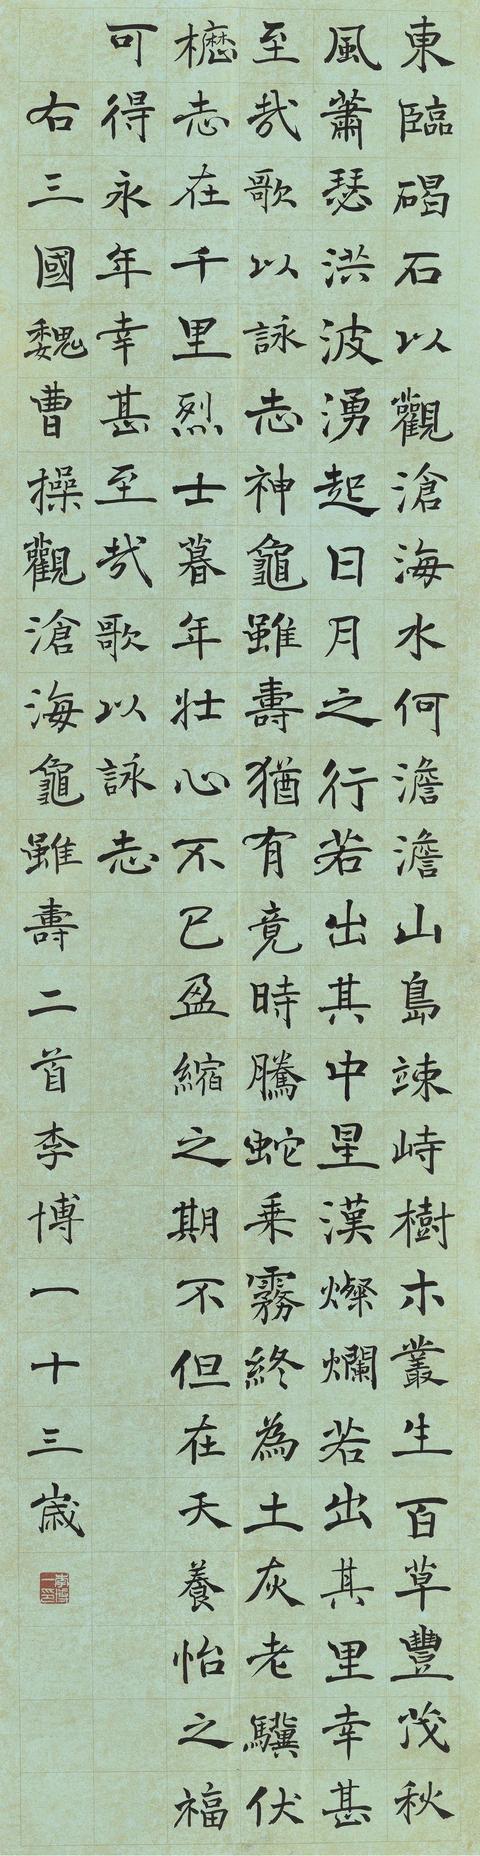 東臨碣石以觀滄海水何澹澹山島竦峙樹木叢生百草豐茂秋
風蕭瑟洪波湧起日月之行若出其中星漢燦爛若出其里幸甚
至哉歌以詠志神龜雖壽猶有竟時騰蛇乘霧終為土灰老驥伏
櫪志在千里烈士暮年壯心不已盈縮之期不但在天養怡之福
可得永年幸甚至哉歌以詠志
右三國魏曹操觀滄海龜雖壽二首李博一十三歲
李博一印